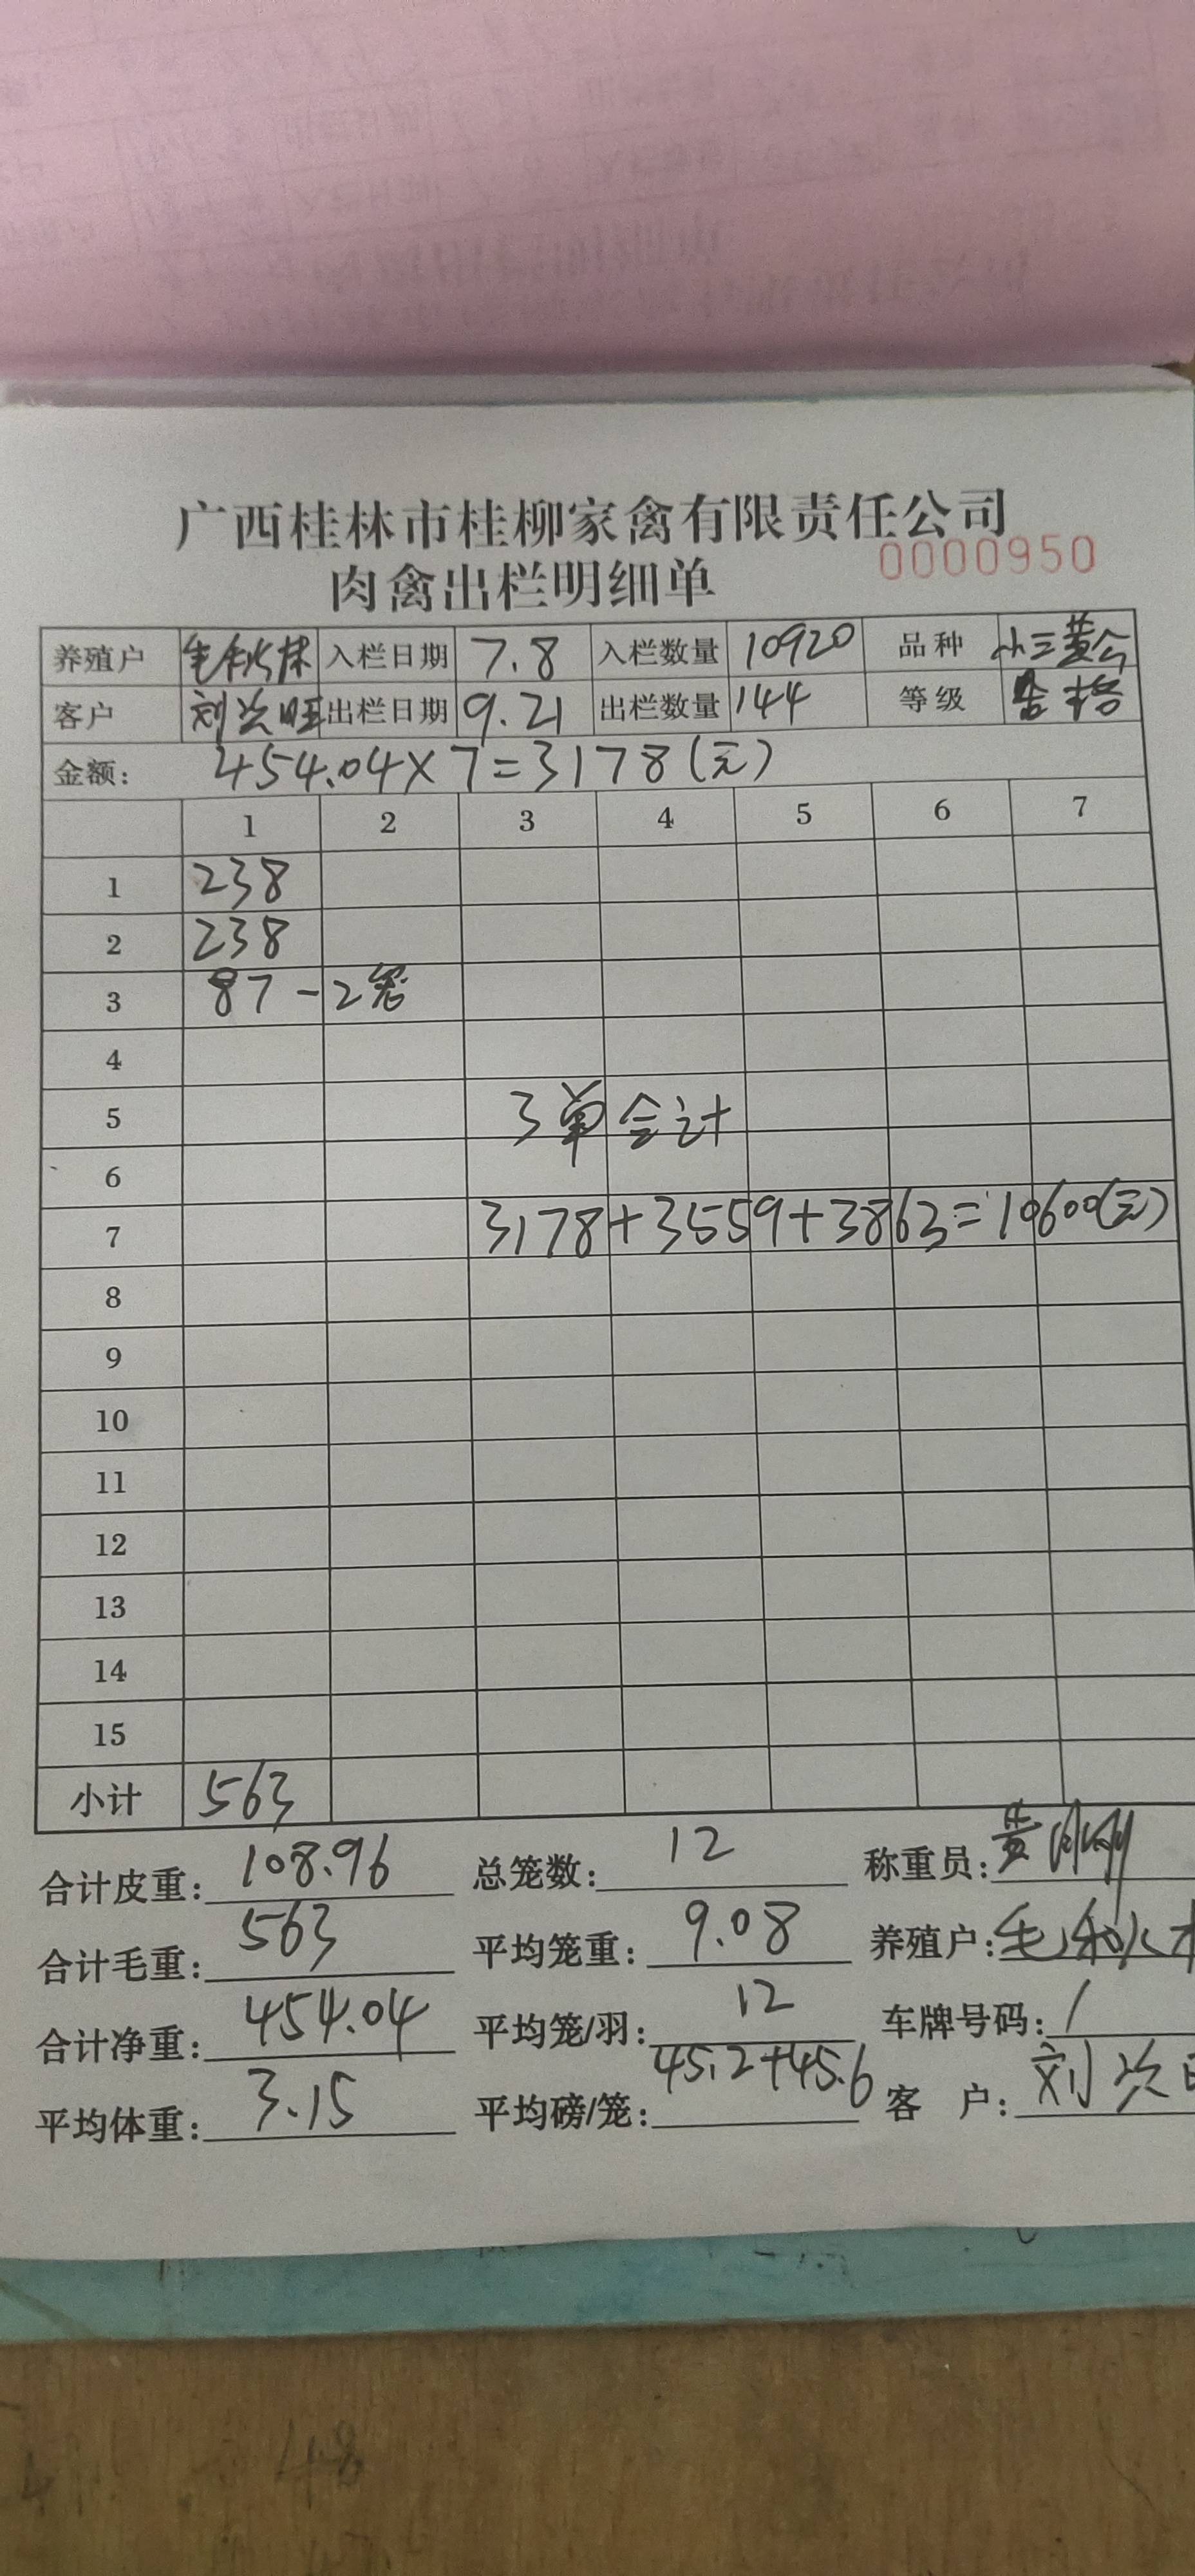 广西桂林市桂柳家禽有限责任公司
肉禽出栏明细单 0000950
养殖户 毛 入栏日期 7.8 入栏数量 10920 品种 小三黄公
客户 刘次旺 出栏日期 9.21 出栏数量 144 等级 合格
金额: 454.04×7=3178(元)
1 2 3 4 5 6 7
1 238
2 238
3 87-2笼
4
5 3单合计
6
7 3178+3559+3863=10600(元)
8
9
10
11
12
13
14
15
小计 563
合计皮重: 108.96 总笼数: 12 称重员: 黄
合计毛重: 563 平均笼重: 9.08 养殖户: 毛
合计净重: 454.04 平均笼/羽: 12 车牌号码: /
平均体重: 3.15 平均磅/笼: 45.2+45.6 客 户: 刘次